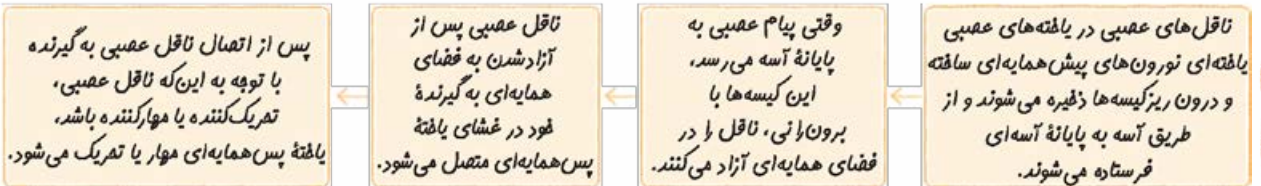 ناقل‌های عصبی در یاخته‌های عصبی
یاخته‌ای نورون‌های پیش‌همایه‌ای ساخته
و درون ریزکیسه‌ها ذخیره می‌شوند و از
طریق آسه به پایانهٔ آسه‌ای
فرستاده می‌شوند.
وقتی پیام عصبی به
پایانهٔ آسه می‌رسد،
این کیسه‌ها با
برون‌رانی، ناقل را در
فضای همایه‌ای آزاد می‌کنند.
ناقل عصبی پس از
آزادشدن به فضای
همایه‌ای به گیرندهٔ
خود در غشای یاختهٔ
پس‌همایه‌ای متصل می‌شود.
پس از اتصال ناقل عصبی به گیرنده
با توجه به این‌که ناقل عصبی،
تحریک‌کننده یا مهارکننده باشد،
یاختهٔ پس‌همایه‌ای مهار یا تحریک می‌شود.